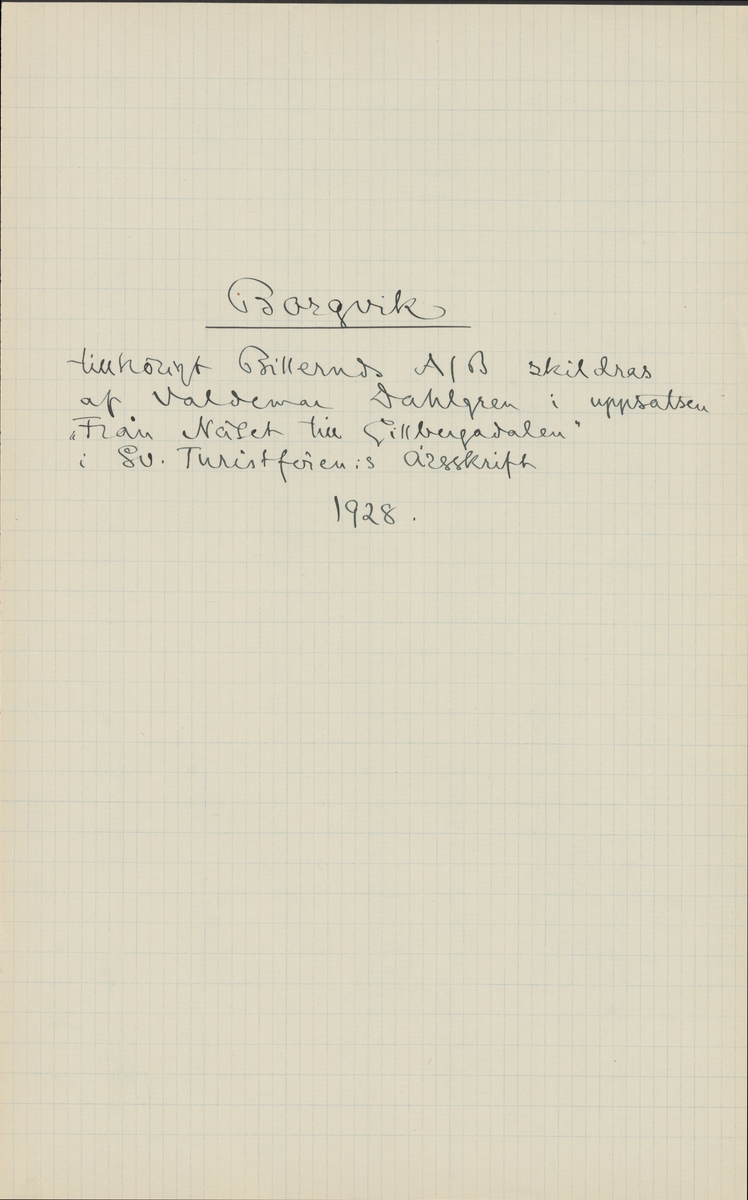 Borgvik
tillhörigt Billeruds A/B skildras
af Valdemar Dahlgren i uppsatsen
„Från Näset till Gillbergadalen"
i Sv. Turistfören:s Årsskrift
1928.